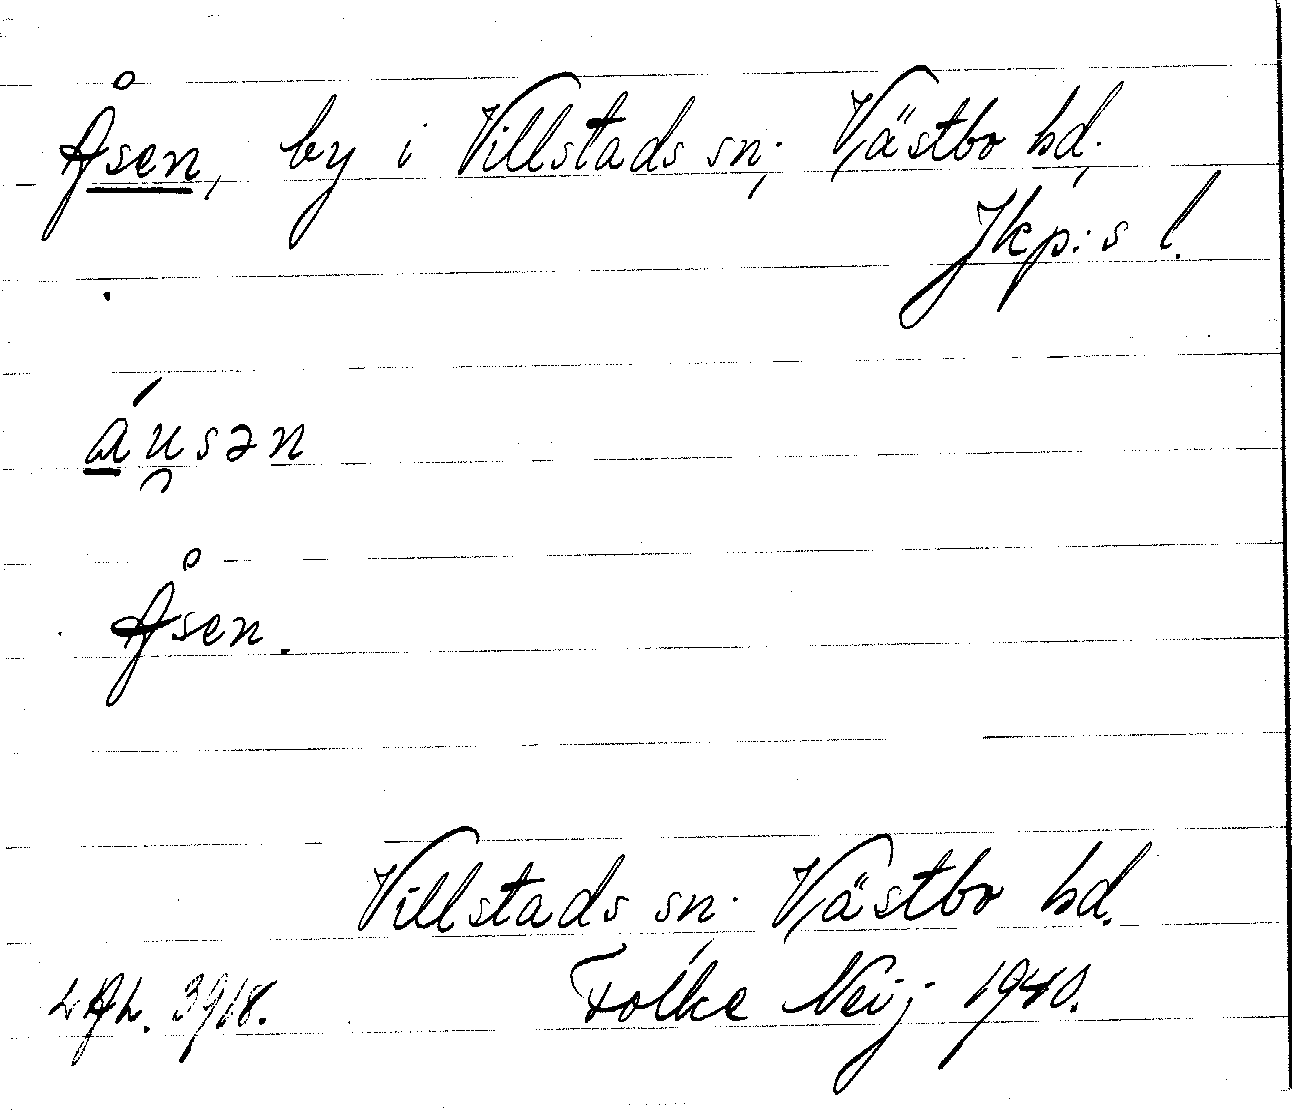 Åsen, by i Villstads sn; Västbo hd;
Jkp:s l.
áu̯sən
Åsen.
Villstads sn. Västbo hd.
LAL. 3918. Folke Neij 1940.